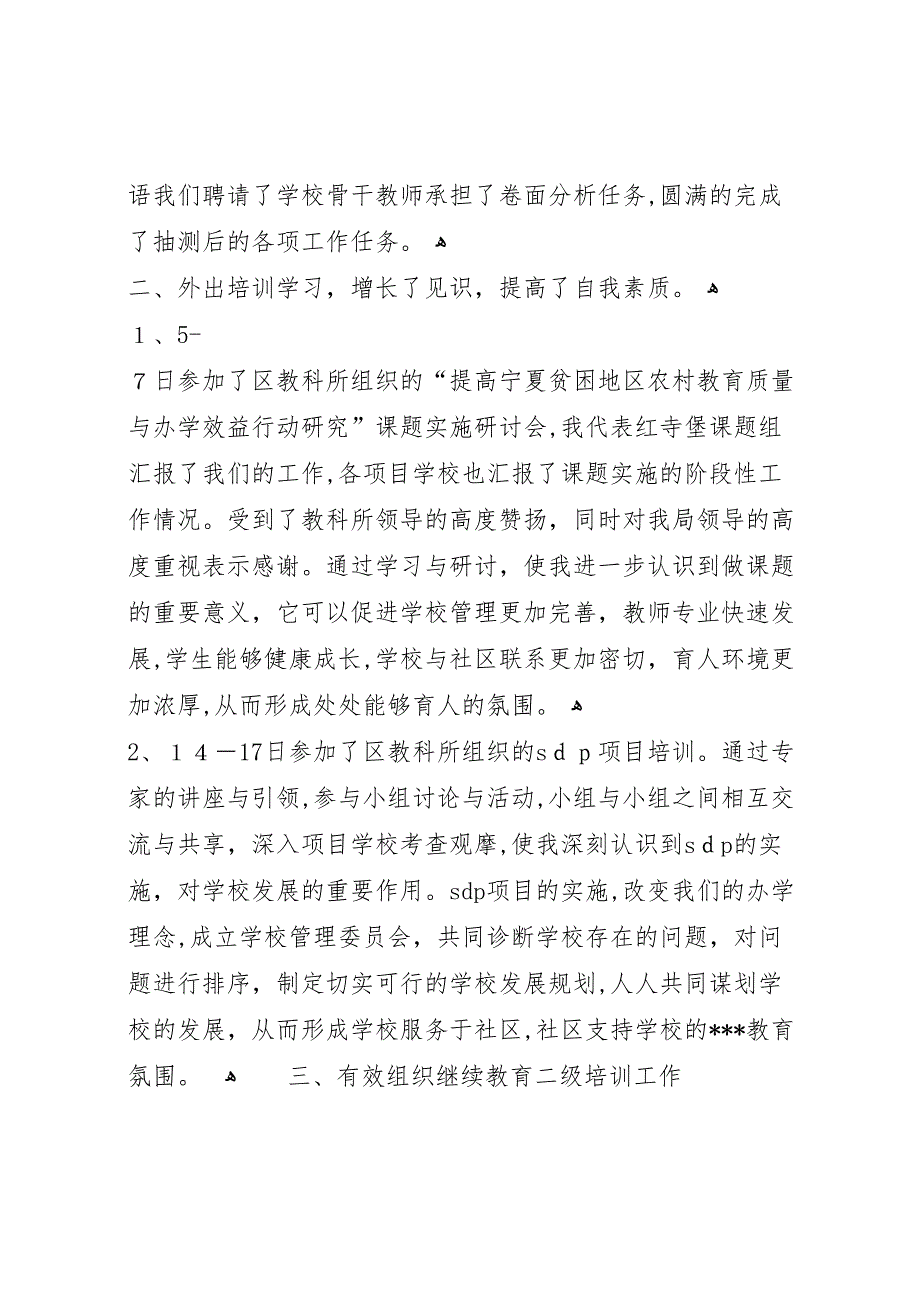 语我们聘请了学校骨干教师承担了卷面分析任务,圆满的完成
了抽测后的各项工作任务。 ﻫ
二、外出培训学习，增长了见识，提高了自我素质。 ﻫ
１、5-
７日参加了区教科所组织的“提高宁夏贫困地区农村教育质量
与办学效益行动研究”课题实施研讨会,我代表红寺堡课题组
汇报了我们的工作,各项目学校也汇报了课题实施的阶段性工
作情况。受到了教科所领导的高度赞扬，同时对我局领导的高
度重视表示感谢。通过学习与研讨，使我进一步认识到做课题
的重要意义，它可以促进学校管理更加完善，教师专业快速发
展,学生能够健康成长,学校与社区联系更加密切，育人环境更
加浓厚,从而形成处处能够育人的氛围。 ﻫ
2、１４－17日参加了区教科所组织的sｄｐ项目培训。通过专
家的讲座与引领,参与小组讨论与活动,小组与小组之间相互交
流与共享，深入项目学校考查观摩,使我深刻认识到sｄp的实
施，对学校发展的重要作用。sdp项目的实施,改变我们的办学
理念,成立学校管理委员会，共同诊断学校存在的问题，对问
题进行排序，制定切实可行的学校发展规划,人人共同谋划学
校的发展，从而形成学校服务于社区,社区支持学校的***教育
氛围。 ﻫ 三、有效组织继续教育二级培训工作